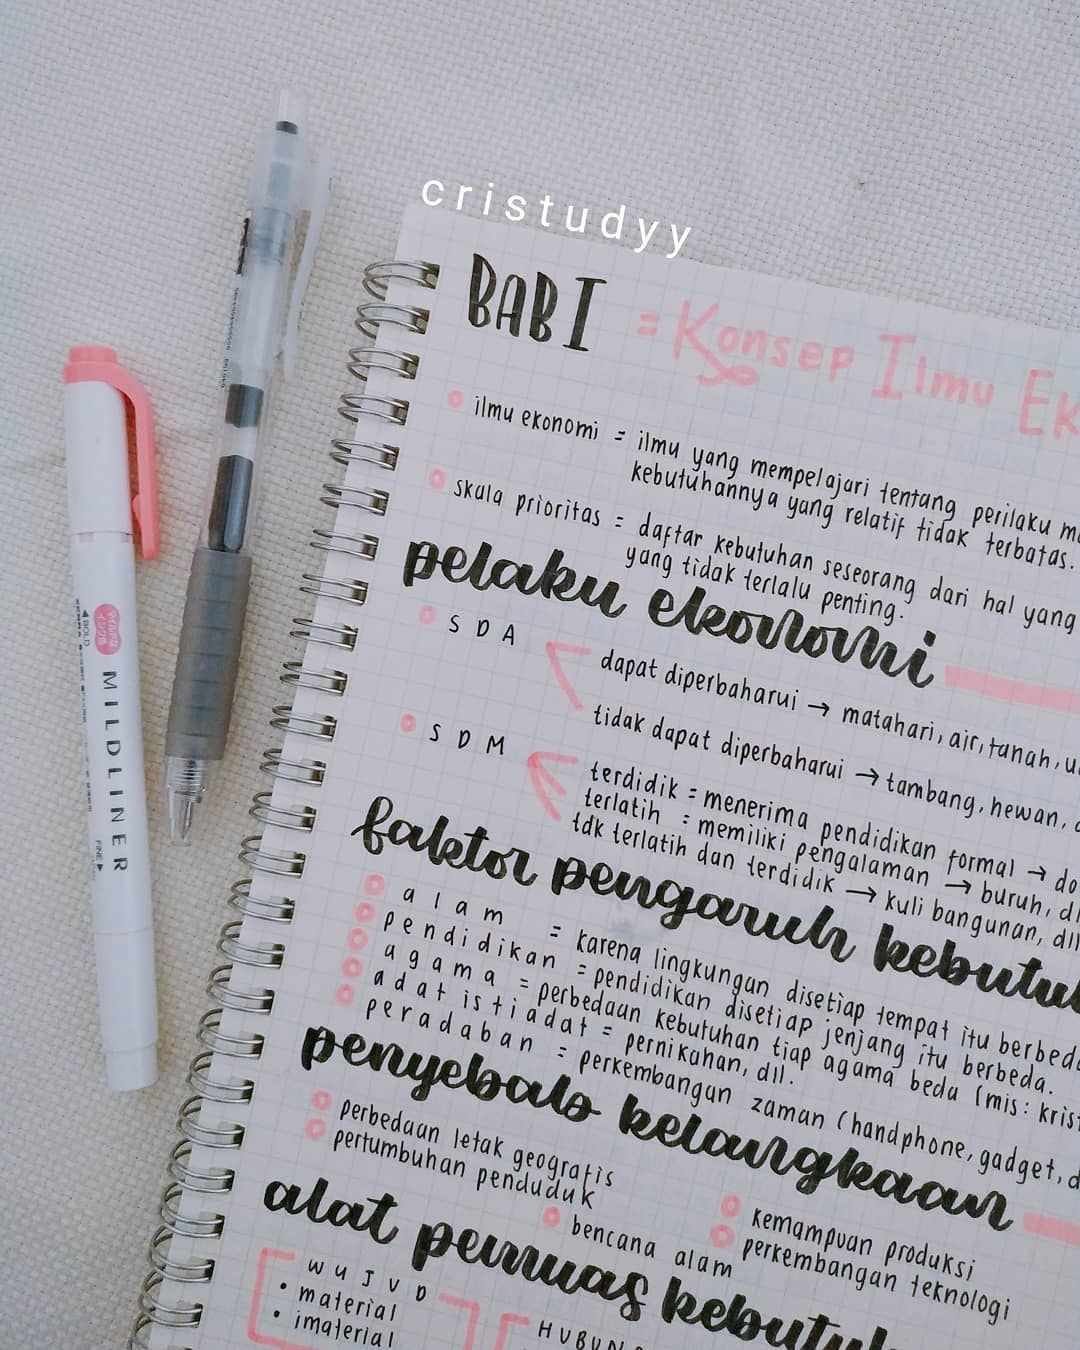 cristudyy
BAB I = Konsep Ilmu Ek
ilmu ekonomi = ilmu yang mempelajari tentang perilaku m
kebutuhannya yang relatif tidak terbatas.
skala prioritas = daftar kebutuhan seseorang dari hal yang
yang tidak terlalu penting.
pelaku ekonomi
SDA
dapat diperbaharui → matahari, air, tanah, u
tidak dapat diperbaharui → tambang, hewan, d
SDM
terdidik = menerima pendidikan formal → do
terlatih = memiliki pengalaman → buruh, dl
tdk terlatih dan terdidik → kuli bangunan, dll
faktor pengaruh kebutu
alam = karena lingkungan disetiap tempat itu berbeda
pendidikan = pendidikan disetiap jenjang itu berbeda.
agama = perbedaan kebutuhan tiap agama beda (mis: krist
adat istiadat = pernikahan, dll.
peradaban = perkembangan zaman (handphone, gadget, d
penyebab kelangkaan
perbedaan letak geografis
pertumbuhan penduduk
bencana alam
kemampuan produksi
perkembangan teknologi
alat pemuas kebutuh
WUJUD
• material
• imaterial
HUBUN
MILDLINER
BOLD
FINE